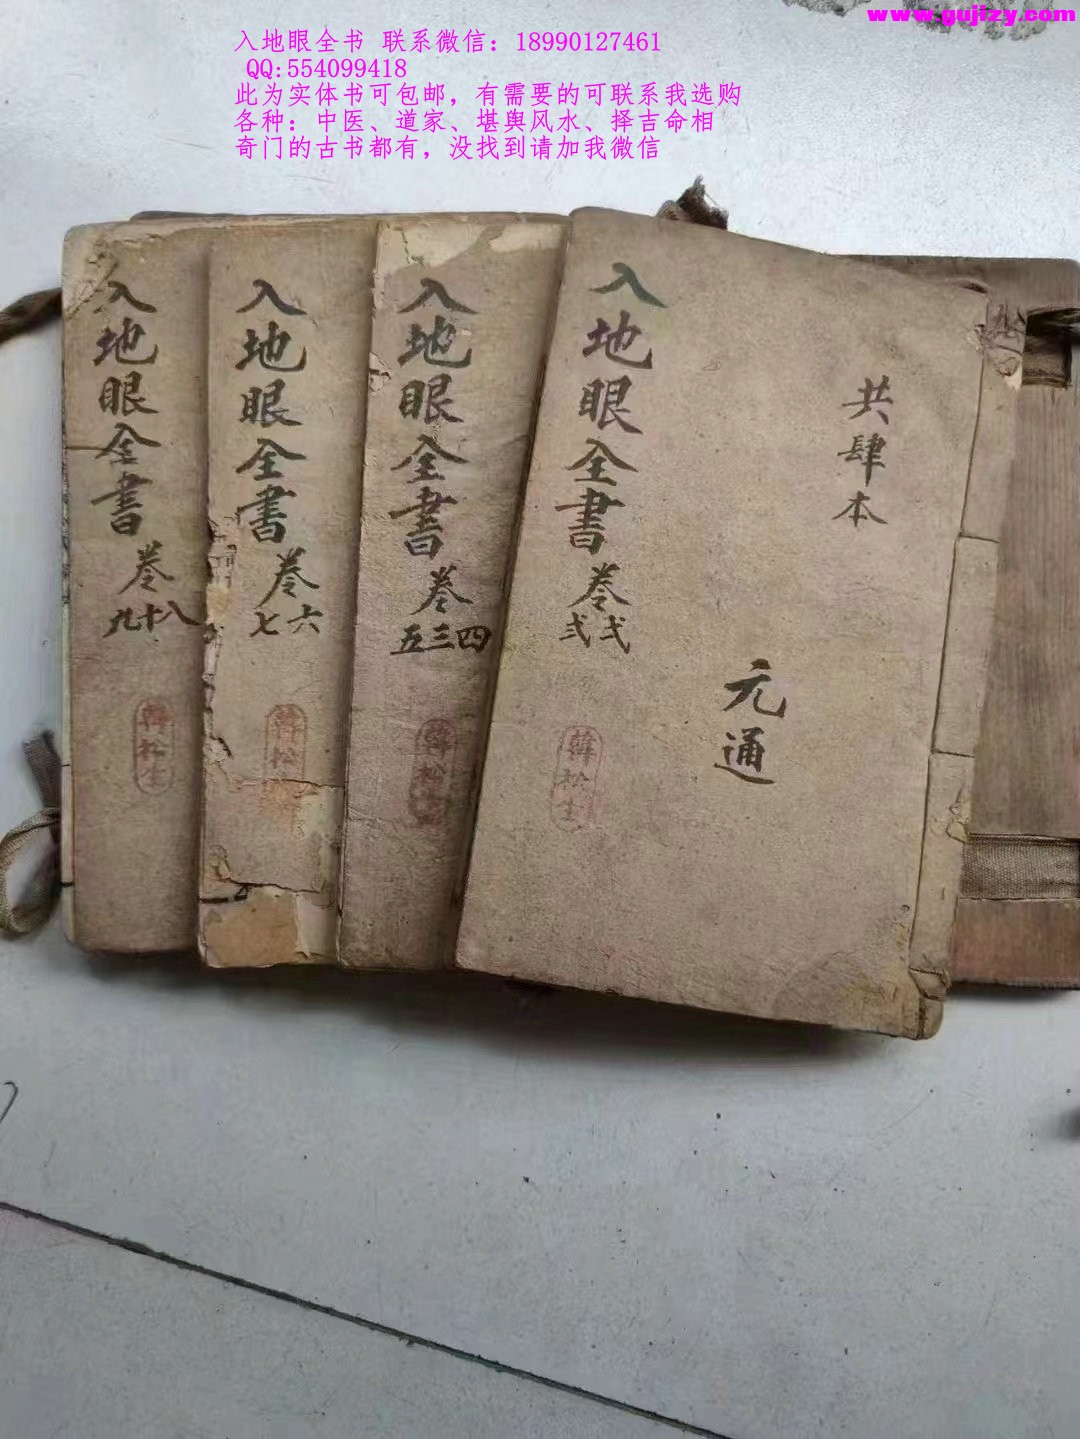 www.gujizy.com
入地眼全书 联系微信：18990127461
QQ:554099418
此为实体书可包邮，有需要的可联系我选购
各种：中医、道家、堪舆风水、择吉命相
奇门的古书都有，没找到请加我微信
共肆本
元通
入地眼全書
卷
弍弍
韓松生
入地眼全書
卷
四三五
韓松
入地眼全書
卷
六七
韓松
入地眼全書
卷
八十九
韓松生